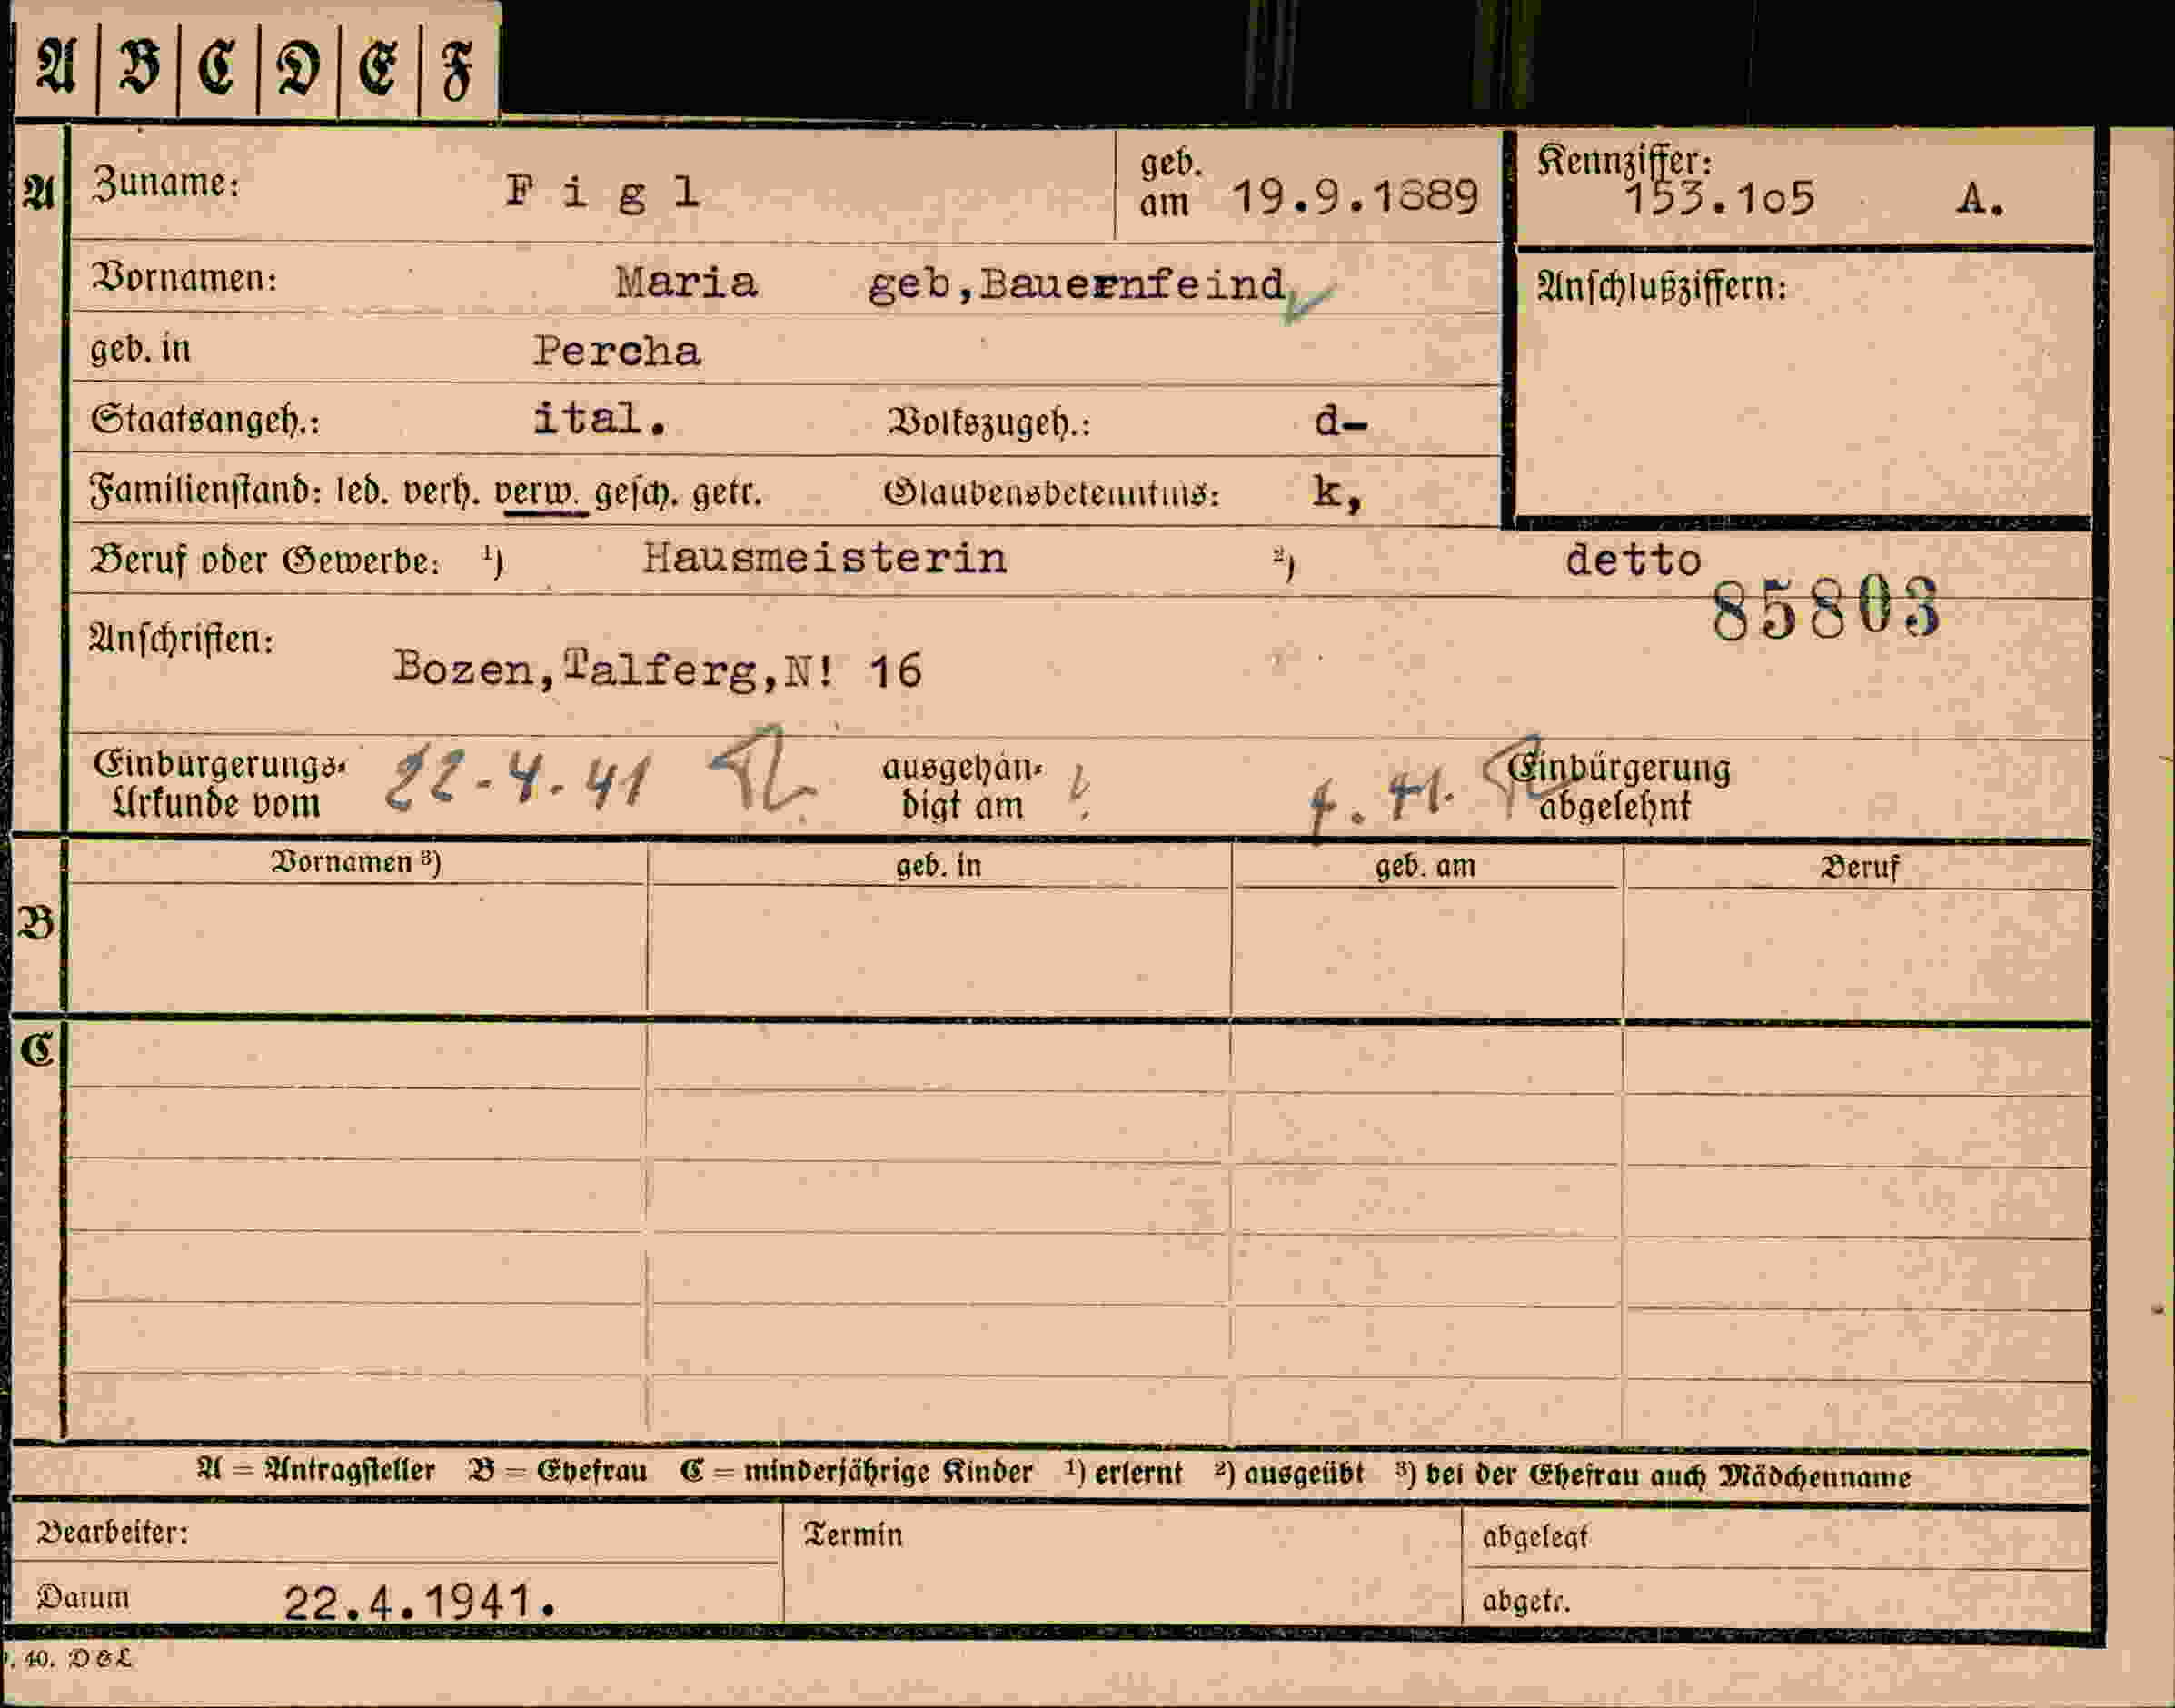 A B C D E F
A Zuname: Figl geb. am 19.9.1889 Kennziffer: 153.1o5 A.
Vornamen: Maria geb,Bauernfeind Anschlußziffern:
geb. in Percha
Staatsangeh.: ital. Volkszugeh.: d-
Familienstand: led. verh. verw. gesch. getr. Glaubensbekenntnis: k,
Beruf oder Gewerbe: 1) Hausmeisterin 2) detto
85803
Anschriften:
Bozen,Talferg,N! 16
Einbürgerungs-Urkunde vom 22-4.41 ausgehändigt am 4.41. Einbürgerung abgelehnt
Vornamen 3) geb. in geb. am Beruf
B
C
A = Antragsteller B = Ehefrau C = minderjährige Kinder 1) erlernt 2) ausgeübt 3) bei der Ehefrau auch Mädchenname
Bearbeiter: Termin abgelegt
Datum 22.4.1941. abgetr.
40. D & L